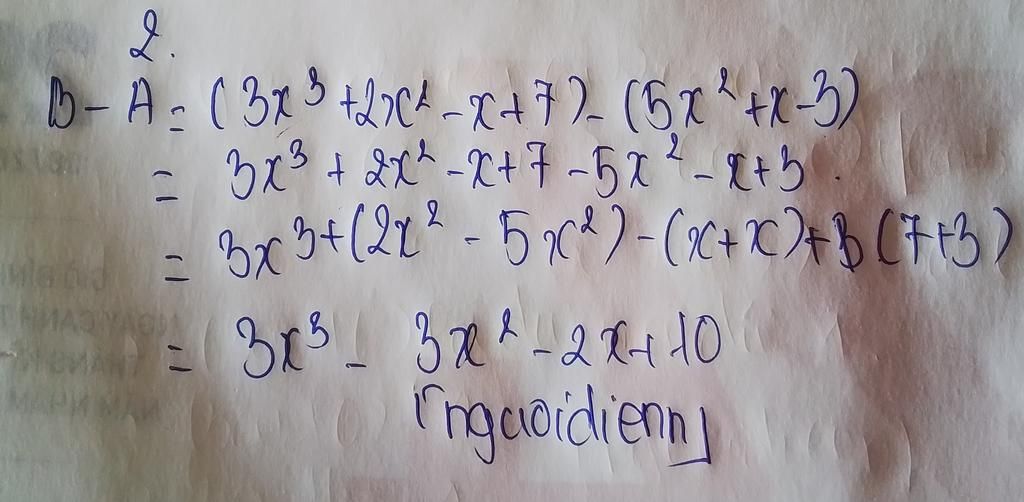 2.
B - A = (3x³ + 2x² - x + 7) - (5x² + x - 3)
= 3x³ + 2x² - x + 7 - 5x² - x + 3.
= 3x³ + (2x² - 5x²) - (x + x) + (7 + 3)
= 3x³ - 3x² - 2x + 10
⌈nguoidienn⌋